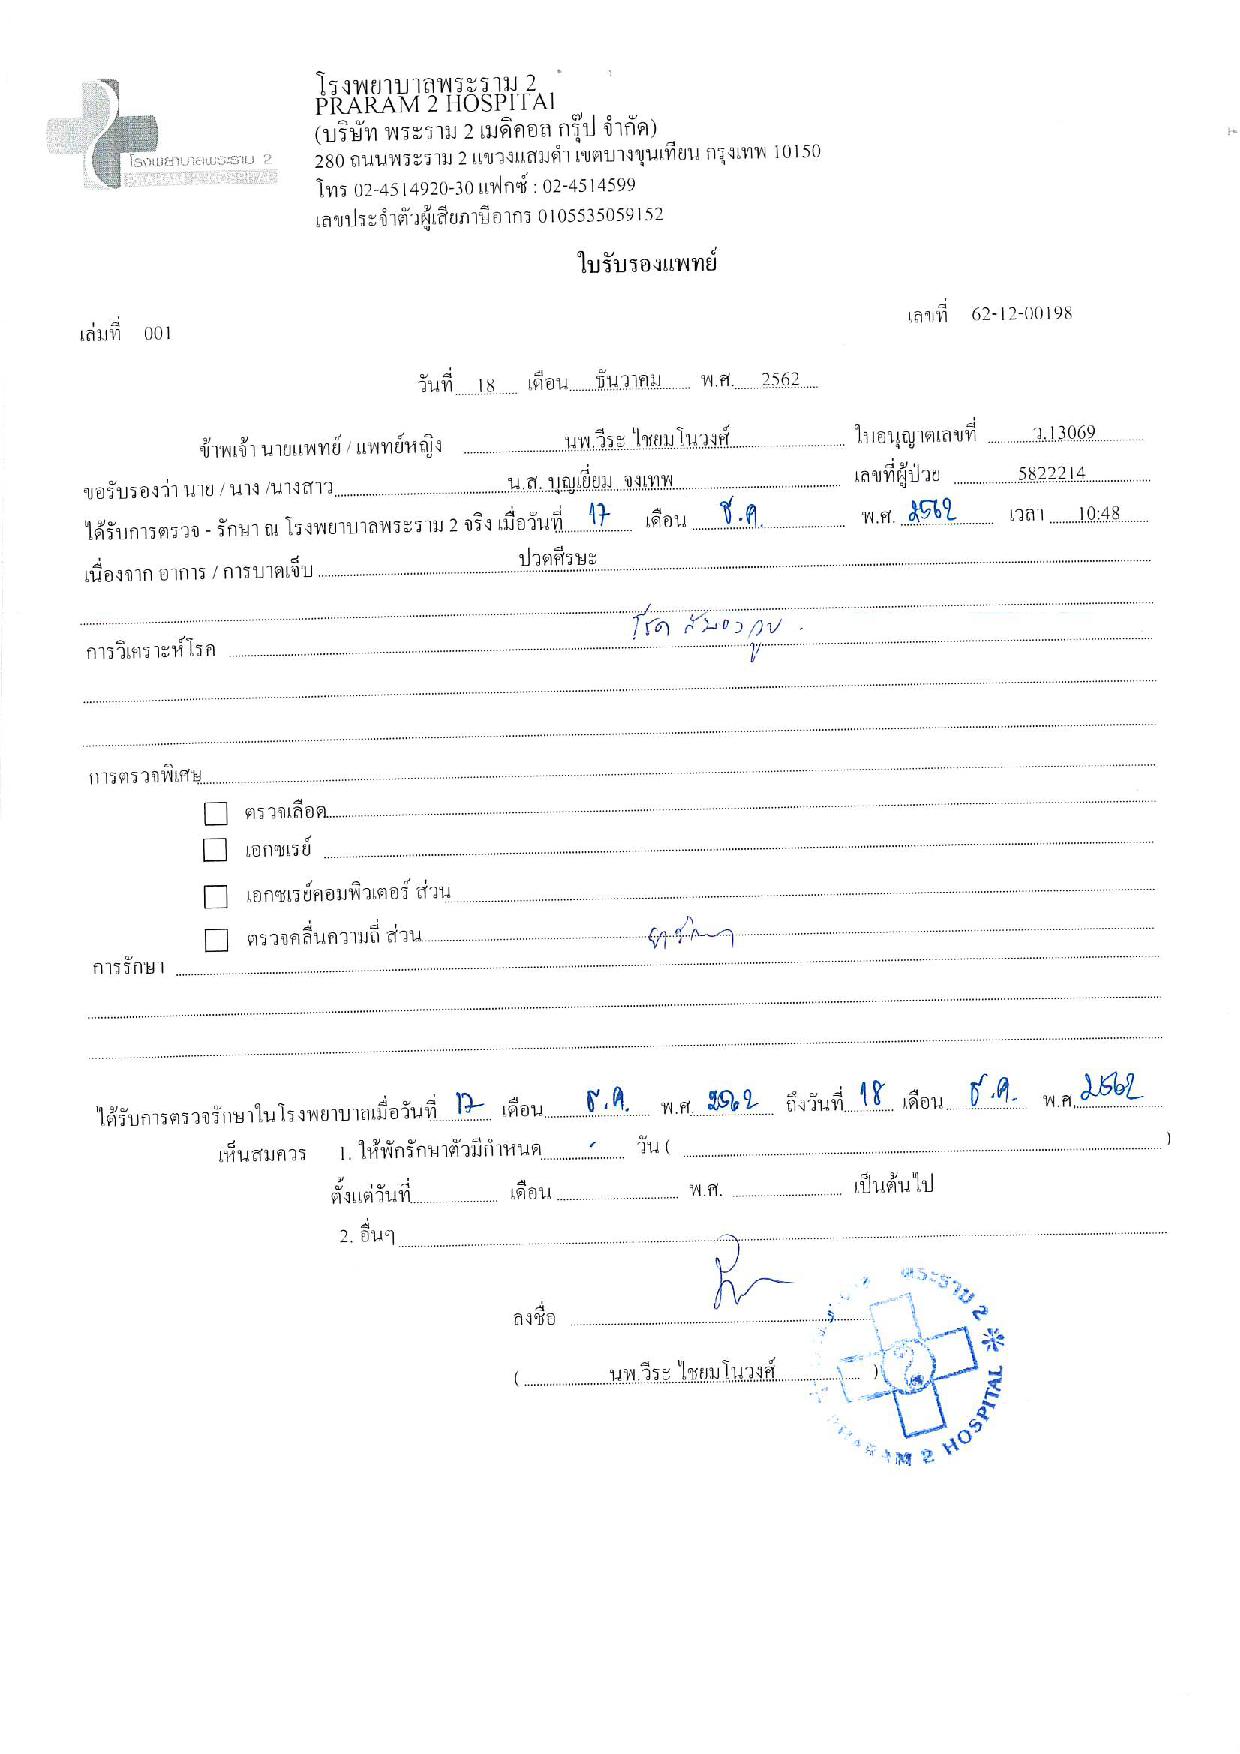 โรงพยาบาลพระราม 2
โรงพยาบาลพระราม 2
PRARAM 2 HOSPITAL
(บริษัท พระราม 2 เมดิคอล กรุ๊ป จำกัด)
280 ถนนพระราม 2 แขวงแสมดำ เขตบางขุนเทียน กรุงเทพ 10150
โทร 02-4514920-30 แฟกซ์ : 02-4514599
เลขประจำตัวผู้เสียภาษีอากร 0105535059152
ใบรับรองแพทย์
เลขที่ 62-12-00198
เล่มที่ 001
วันที่ 18 เดือน ธันวาคม พ.ศ. 2562
ข้าพเจ้า นายแพทย์ / แพทย์หญิง นพ.วีระ ไชยมโนวงศ์ ใบอนุญาตเลขที่ ว.13069
ขอรับรองว่า นาย / นาง /นางสาว น.ส. บุญเยี่ยม จงเทพ เลขที่ผู้ป่วย 5822214
ได้รับการตรวจ - รักษา ณ โรงพยาบาลพระราม 2 จริง เมื่อวันที่ 17 เดือน ธ.ค. พ.ศ. 2562 เวลา 10:48
เนื่องจาก อาการ / การบาดเจ็บ ปวดศีรษะ
การวิเคราะห์โรค โรค
การตรวจพิเศษ
ตรวจเลือด
เอกซเรย์
เอกซเรย์คอมพิวเตอร์ ส่วน
ตรวจคลื่นความถี่ ส่วน
การรักษา
ได้รับการตรวจรักษาในโรงพยาบาลเมื่อวันที่ 17 เดือน ธ.ค. พ.ศ. 2562 ถึงวันที่ 18 เดือน ธ.ค. พ.ศ. 2562
เห็นสมควร 1. ให้พักรักษาตัวมีกำหนด - วัน ( )
ตั้งแต่วันที่ เดือน พ.ศ. เป็นต้นไป
2. อื่นๆ
ลงชื่อ
( นพ.วีระ ไชยมโนวงศ์ )
พระราม 2
PRARAM 2 HOSPITAL